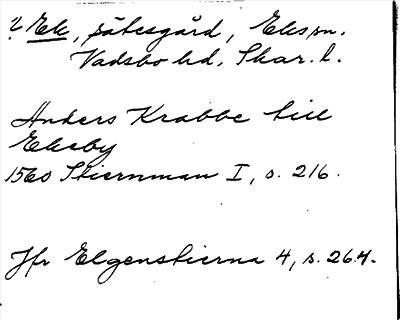 ? Ek, sätesgård, Eks sn.
Vadsbo hd, Skar. l.
Anders Krabbe till
Eksby
1560 Stiernman I, s. 216.
Jfr Elgenstierna 4, s. 264.